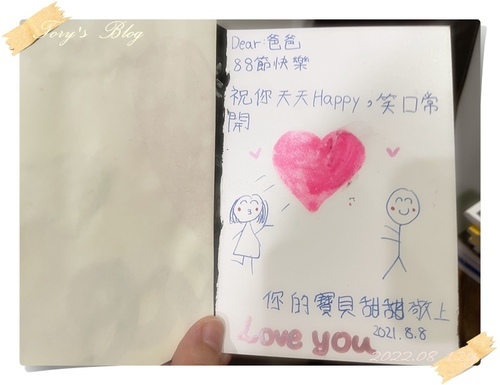 Tory's Blog
Dear 爸爸
88節快樂
祝你天天Happy,笑口常
開
你的寶貝甜甜敬上
2021.8.8
Love you